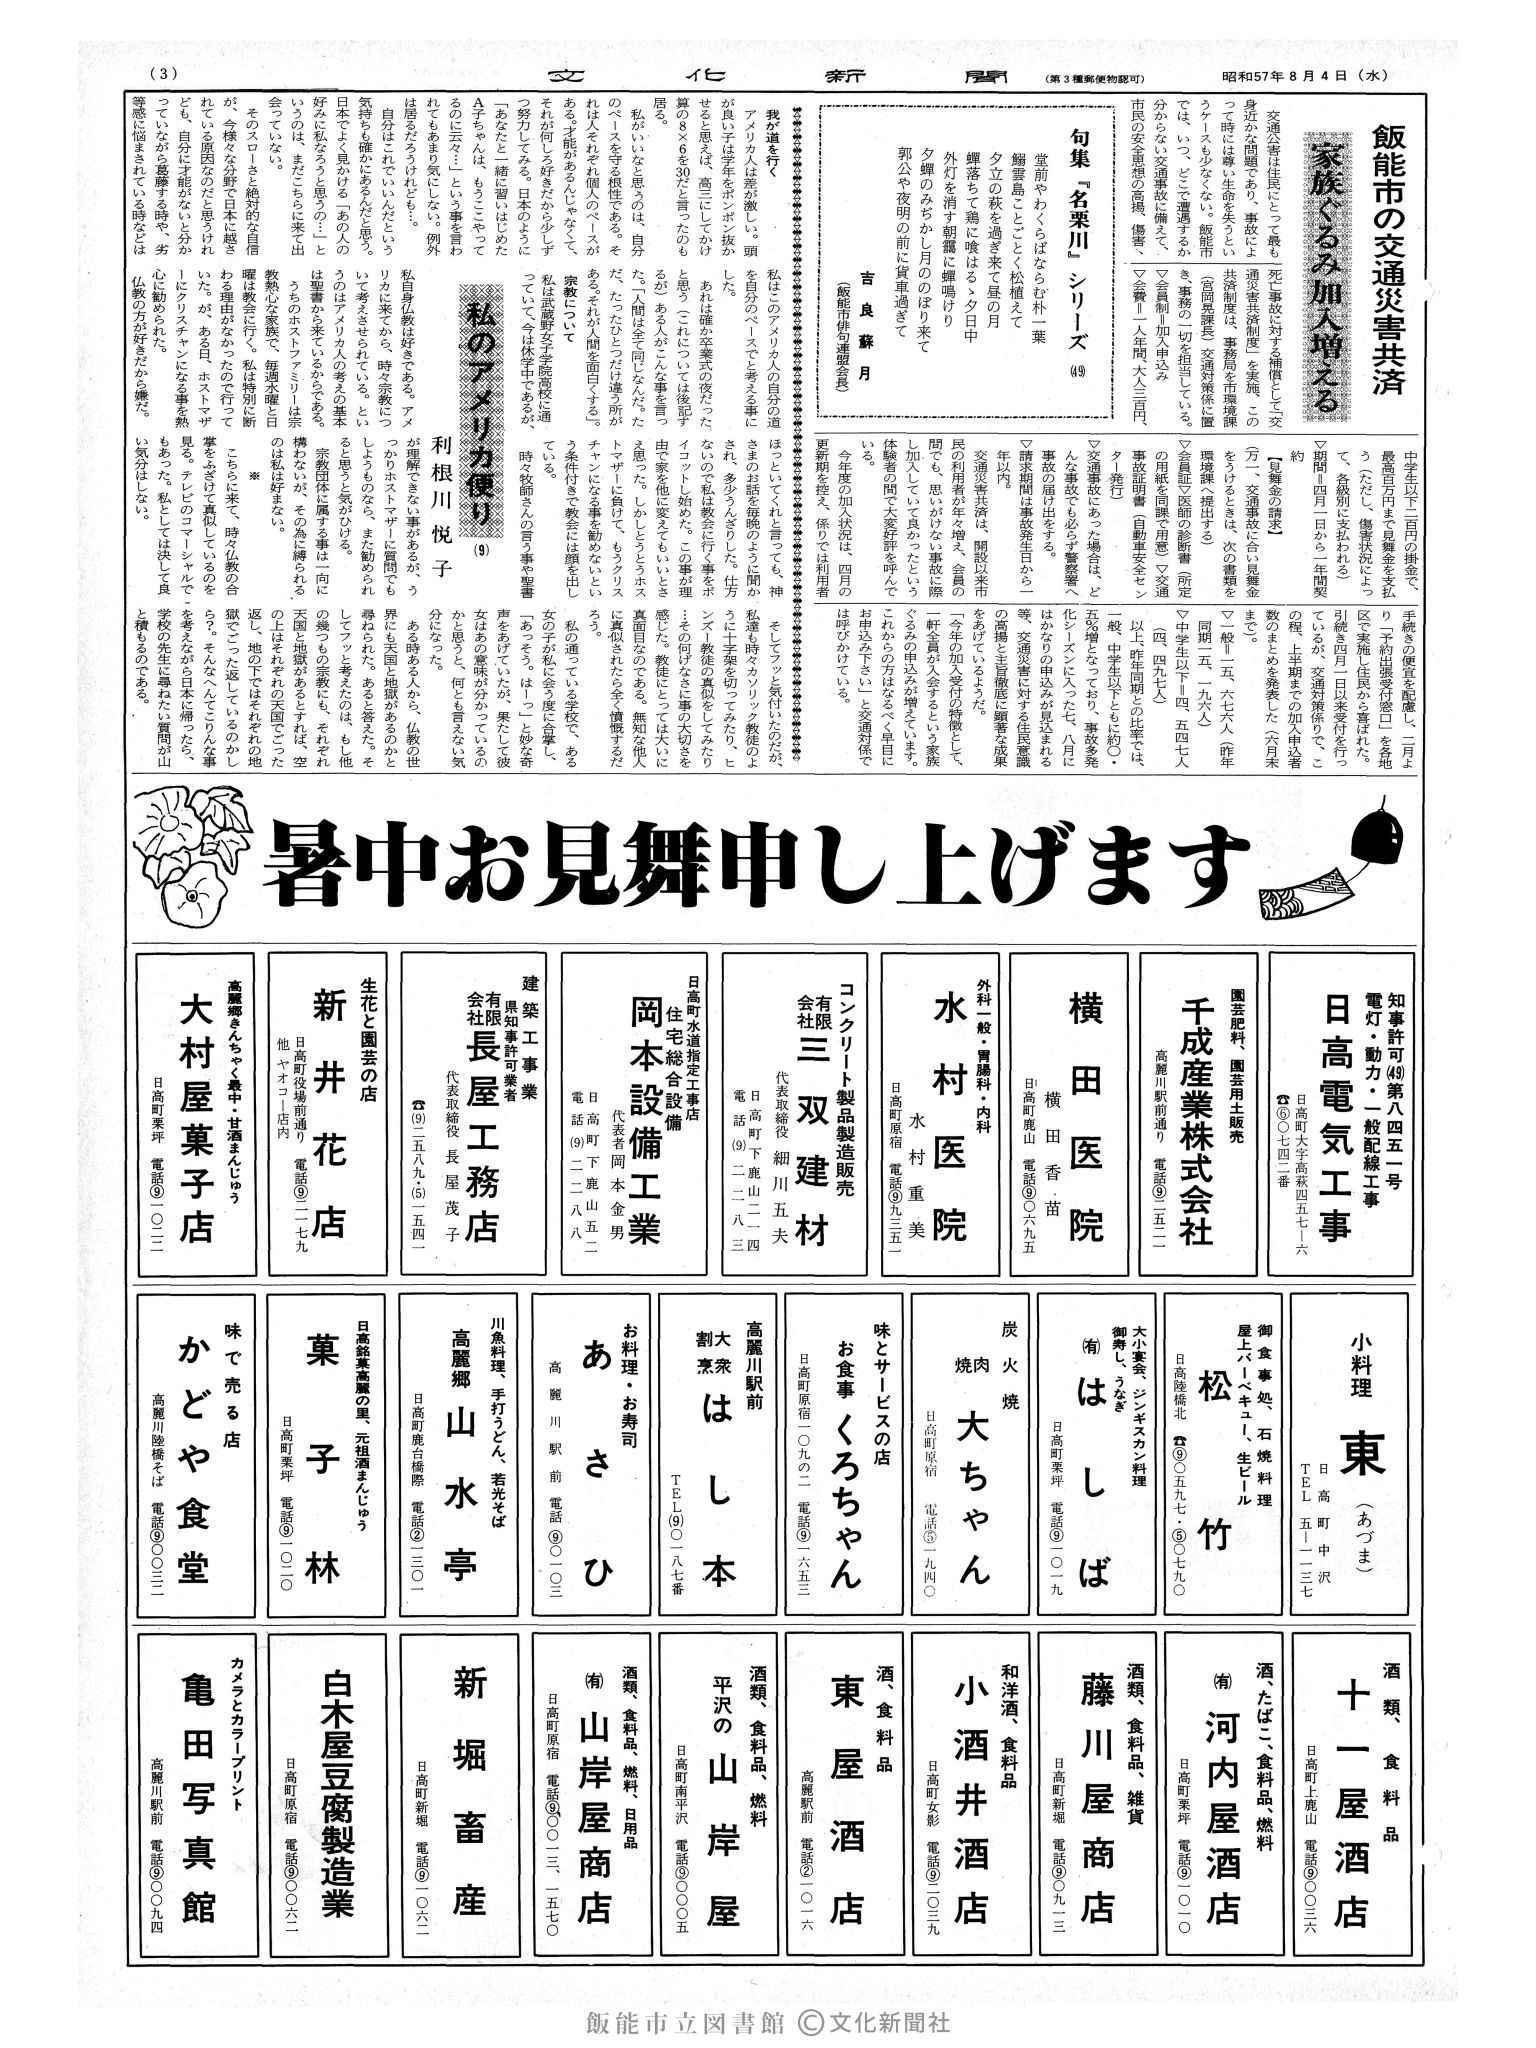 (3)
文化新聞
(第3種郵便物認可)
昭和57年8月4日(水)
飯能市の交通災害共済
家族ぐるみ加入増える
交通公害は住民にとって最も
身近かな問題であり、事故によ
って時には尊い生命を失うとい
うケースも少なくない。飯能市
では、いつ、どこで遭遇するか
分からない交通事故に備えて、
市民の安全思想の高揚、傷害、
死亡事故に対する補償として「交
通災害共済制度」を実施、この
共済制度は、事務局を市環境課
(宮岡晃課長)交通対策係に置
き、事務の一切を担当している。
▽会員制=加入申込み
▽会費=一人年間、大人三百円、
中学生以下二百円の掛金で、
最高百万円まで見舞金を支払
う(ただし、傷害状況によっ
て、各級別に支払われる)
▽期間=四月一日から一年間契
約
【見舞金の請求】
(万一、交通事故に合い見舞金
をうけるときは、次の書類を
環境課へ提出する)
▽会員証▽医師の診断書(所定
の用紙を同課で用意)▽交通
事故証明書(自動車安全セン
ター発行)
▽交通事故にあった場合は、ど
んな事故でも必らず警察署へ
事故の届け出をする。
▽請求期間は事故発生日から一
年以内。
交通災害共済は、開設以来市
民の利用者が年々増え、会員の
間でも、思いがけない事故に際
し加入していて良かったという
体験者の間で大変好評を呼んで
いる。
今年度の加入状況は、四月の
更新期を控え、係りでは利用者
手続きの便宜を配慮し、二月よ
り「予約出張受付窓口」を各地
区で実施し住民から喜ばれた。
引続き四月一日以来受付を行っ
ているが、交通対策係りで、こ
の程、上半期までの加入申込者
数のまとめを発表した(六月末
まで)。
▽一般=一五、六七六人(昨年
同期一五、一九六人)
▽中学生以下=四、五四七人
(四、四九七人)
以上、昨年同期との比率では、
一般、中学生以下ともに約〇・
五%増となっており、事故多発
化シーズンに入った七、八月に
はかなりの申込みが見込まれる
等、交通災害に対する住民意識
の高揚と主旨徹底に顕著な成果
をあげているようだ。
「今年の加入受付の特徴として、
一軒全員が入会するという家族
ぐるみの申込みが増えています。
これからの方はなるべく早目に
お申込み下さい」と交通対係で
は呼びかけている。
句集『名栗川』シリーズ(49)
堂前やわくらばならむ朴一葉
鰯雲島ことごとく松植えて
夕立の萩を過ぎ来て昼の月
蟬落ちて鶏に喰はるゝ夕日中
外灯を消す朝靄に蟬鳴けり
夕蟬のみぢかし月ののぼり来て
郭公や夜明の前に貨車過ぎて
吉良蘇月
(飯能市俳句連盟会長)
私のアメリカ便り(9)
利根川悦子
我が道を行く
アメリカ人は差が激しい。頭
が良い子は学年をポンポン抜か
せると思えば、高三にしてかけ
算の8×6を30だと言ったのも
居る。
私がいいなと思うのは、自分
のペースを守る根性である。そ
れは人それぞれ個人のペースが
ある。才能があるんじゃなくて、
それが何しろ好きだから少しず
つ努力してみる。日本のように
「あなたと一緒に習いはじめた
A子ちゃんは、もうここやって
るのに云々…」という事を言わ
れてもあまり気にしない。例外
は居るだろうけれども…。
自分はこれでいいんだという
気持ちも確かにあるんだと思う。
日本でよく見かける「あの人の
好みに私なろうと思うの…」と
いうのは、まだこちらに来て出
会っていない。
そのスローさと絶対的な自信
が、今様々な分野で日本に越さ
れている原因なのだと思うけれ
ども、自分に才能がないと分か
っていながら葛藤する時や、劣
等感に悩まされている時などは
私はこのアメリカ人の自分の道
を自分のペースでと考える事に
した。
あれは確か卒業式の夜だった
と思う(これについては後記す
るが)ある人がこんな事を言っ
た。「人間は全て同じなんだ。た
だ、たったひとつだけ違う所が
ある。それが人間を面白くする」。
宗教について
私は武蔵野女子学院高校に通
っていて、今は休学中であるが、
私自身仏教は好きである。アメ
リカに来てから、時々宗教につ
いて考えさせられている。とい
うのはアメリカ人の考えの基本
は聖書から来ているからである。
うちのホストファミリーは宗
教熱心な家族で、毎週水曜と日
曜は教会に行く。私は特別に断
わる理由がなかったので行って
いた。が、ある日、ホストマザ
ーにクリスチャンになる事を熱
心に勧められた。
仏教の方が好きだから嫌だ。
ほっといてくれと言っても、神
さまのお話を毎晩のように聞か
され、多少うんざりした。仕方
ないので私は教会に行く事をボ
イコットし始めた。この事が理
由で家を他に変えてもいいとさ
え思った。しかしとうとうホス
トマザーに負けて、もうクリス
チャンになる事を勧めないとい
う条件付きで教会には顔を出し
ている。
時々牧師さんの言う事や聖書
が理解できない事があるが、う
っかりホストマザーに質問でも
しようものなら、また勧められ
ると思うと気がひける。
宗教団体に属する事は一向に
構わないが、その為に縛られる
のは私は好まない。
※
こちらに来て、時々仏教の合
掌をふざけて真似しているのを
見る。テレビのコマーシャルで
もあった。私としては決して良
い気分はしない。
そしてフッと気付いたのだが、
私達も時々カソリック教徒のよ
うに十字架を切ってみたり、ヒ
ンズー教徒の真似をしてみたり
…その何げなさに事の大切さを
感じた。教徒にとっては大いに
真面目なのである。無知な他人
に真似されたら全く憤慨するだ
ろう。
私の通っている学校で、ある
女の子が私に会う度に合掌し、
「あっそう。はーっ」と妙な奇
声をあげていたが、果たして彼
女はあの意味が分かっているの
かと思うと、何とも言えない気
分になった。
ある時ある人から、仏教の世
界にも天国と地獄があるのかと
尋ねられた。あると答えた。そ
してフッと考えたのは、もし他
の幾つもの宗教にも、それぞれ
天国と地獄があるとすれば、空
の上はそれぞれの天国でごった
返し、地の下ではそれぞれの地
獄でごった返しているのかし
ら?。そんなへんてこりんな事
を考えながら日本に帰ったら、
学校の先生に尋ねたい質問が山
と積もるのである。
暑中お見舞申し上げます
知事許可(49)第八四五一号
電灯・動力・一般配線工事
日高電気工事
日高町大字高萩四五七一六
☎⑥〇七四二番
園芸肥料、園芸用土販売
千成産業株式会社
高麗川駅前通り 電話⑨二五二一
横田医院
横田香苗
日高町鹿山 電話⑨〇六九五
外科一般・胃腸科・内科
水村医院
水村重美
日高町原宿 電話⑨九三五一
コンクリート製品製造販売
有限会社 三双建材
代表取締役 細川五夫
日高町下鹿山二一四
電話(9)二二八三
日高町水道指定工事店
住宅総合設備
岡本設備工業
代表者 岡本金男
日高町下鹿山五二
電話(9)二二八八
建築工事業
県知事許可業者
有限会社 長屋工務店
代表取締役 長屋茂子
☎(9)二五八九・(5)一五四一
生花と園芸の店
新井花店
日高町役場前通り 電話⑨二一七九
他 ヤオコー店内
高麗郷きんちゃく最中・甘酒まんじゅう
大村屋菓子店
日高町栗坪 電話⑨一〇二二
小料理 東(あづま)
日高町中沢
TEL 五一一一三七
御食事処、石焼料理
屋上バーベキュー、生ビール
松竹
日高陸橋北 ☎⑨〇五九七・⑤〇七九〇
大小宴会、ジンギスカン料理
御寿し、うなぎ
(有)はしば
日高町栗坪 電話⑨一〇一九
炭火焼
焼肉 大ちゃん
日高町原宿 電話⑤一九四〇
味とサービスの店
お食事 くろちゃん
日高町原宿一〇九の二 電話⑨一六五三
高麗川駅前
大衆割烹 はし本
TEL(9)〇一八七番
お料理・お寿司
あさひ
高麗川駅前 電話⑨〇一〇三
川魚料理、手打うどん、若光そば
高麗郷 山水亭
日高町鹿台橋際 電話②一三〇一
日高銘菓高麗の里、元祖酒まんじゅう
菓子林
日高町栗坪 電話⑨一〇二〇
味で売る店
かどや食堂
高麗川陸橋そば 電話⑨〇〇三二
酒類、食料品
十一屋酒店
日高町上鹿山 電話⑨〇〇三六
酒、たばこ、食料品、燃料
(有)河内屋酒店
日高町栗坪 電話⑨一〇一〇
酒類、食料品、雑貨
藤川屋商店
日高町新堀 電話⑨〇九一三
和洋酒、食料品
小酒井酒店
日高町女影 電話⑨二〇三九
酒、食料品
東屋酒店
高麗駅前 電話②一〇一六
酒類、食料品、燃料
平沢の 山岸屋
日高町南平沢 電話⑨〇〇〇五
酒類、食料品、燃料、日用品
(有)山岸屋商店
日高町原宿 電話⑨〇〇一三、一五七〇
新堀畜産
日高町新堀 電話⑨一〇六二
白木屋豆腐製造業
日高町原宿 電話⑨〇〇六二
カメラとカラープリント
亀田写真館
高麗川駅前 電話⑨〇〇九四
飯能市立図書館 ©文化新聞社